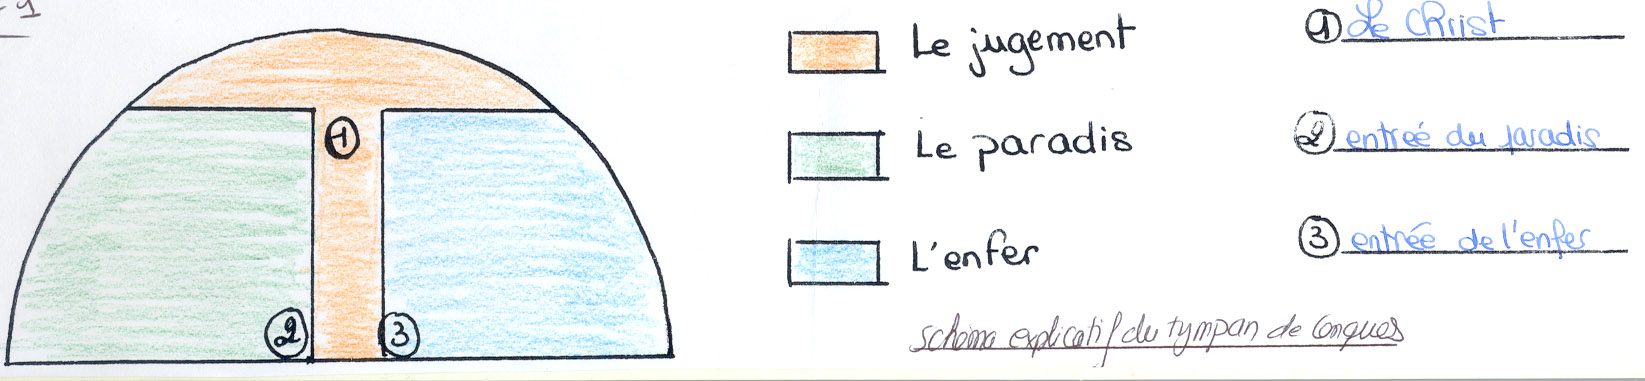 1
2
3
Le jugement
Le paradis
L'enfer
1 Le Christ
2 entreé du paradis
3 entrée de l'enfer
schéma explicatif du tympan de Conques